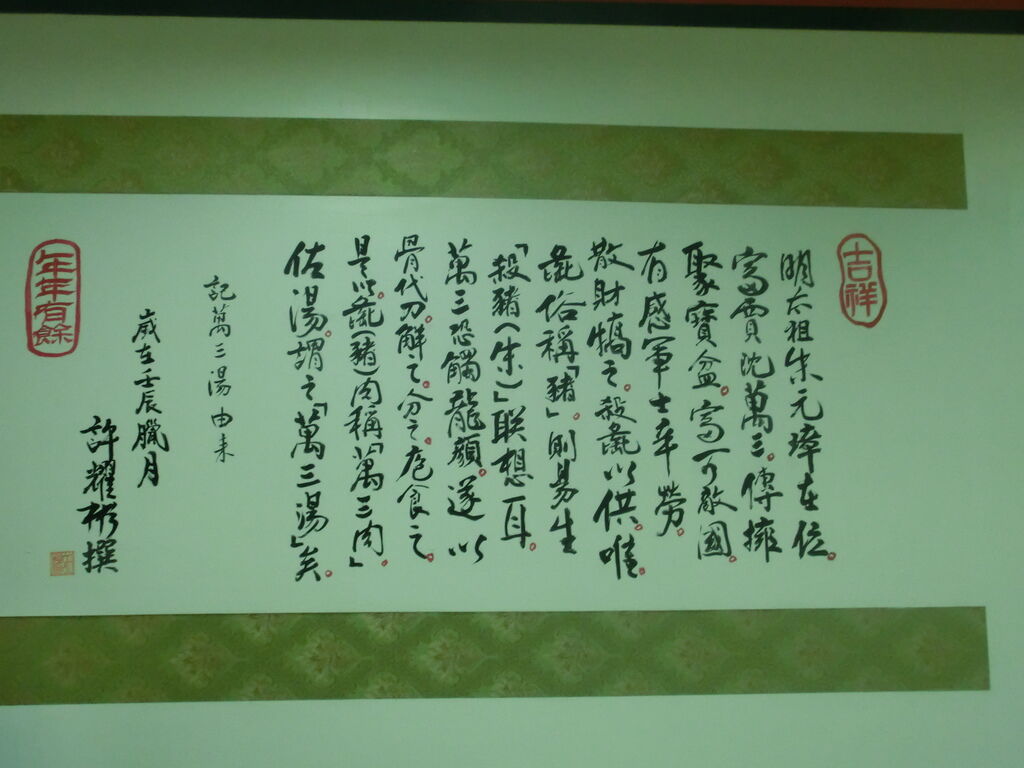 吉祥
明太祖朱元璋在位。
富賈沈萬三。傳擁
聚寶盆。富可敵國。
有感軍士辛勞。
散財犒之。殺彘以供。唯
彘俗稱「豬」。則易生
「殺豬(朱)」联想耳。
萬三恐觸龍顏。遂以
骨代刀。解之。分之。庖食之。
是以。彘(豬)肉稱「萬三肉」。
佐湯。謂之「萬三湯」矣。
記萬三湯由来
歲在壬辰臘月
許耀彬撰
年年有餘